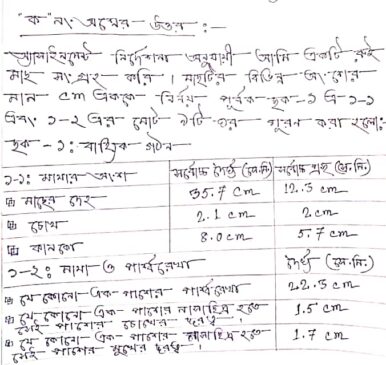 "ক" নং প্রশ্নের উত্তর :-
অ্যাসাইনমেন্ট নির্দেশনা অনুযায়ী আমি একটি রুই
মাছ সংগ্রহ করি । মাছটির বিভিন্ন অংশের
মান cm এককে নির্ণয় পূর্বক ছক-১ এ ১-১
এবং ১-২ এর মোট ৬টি ঘর পূরন করা হলো:-
ছক - ১: বাহ্যিক গঠন
১-১: মাথার অংশ সর্বোচ্চ দৈর্ঘ্য (সে.মি.) সর্বোচ্চ প্রস্থ (সে.মি.)
মাছের দেহ 35.7 cm 12.3 cm
চোখ 2.1 cm 2 cm
কানকো 8.0 cm 5.7 cm
১-২: মাথা ও পার্শ্বরেখা দৈর্ঘ্য (সে.মি.)
যে কোনো এক পাশের পার্শ্বরেখা 22.3 cm
যে কোনো এক পাশের নাসাছিদ্র হতে 1.5 cm
সেই পাশের চোখের দূরত্ব ।
যে কোনো এক পাশের নাসাছিদ্র হতে 1.7 cm
সেই পাশের মুখের দূরত্ব ।